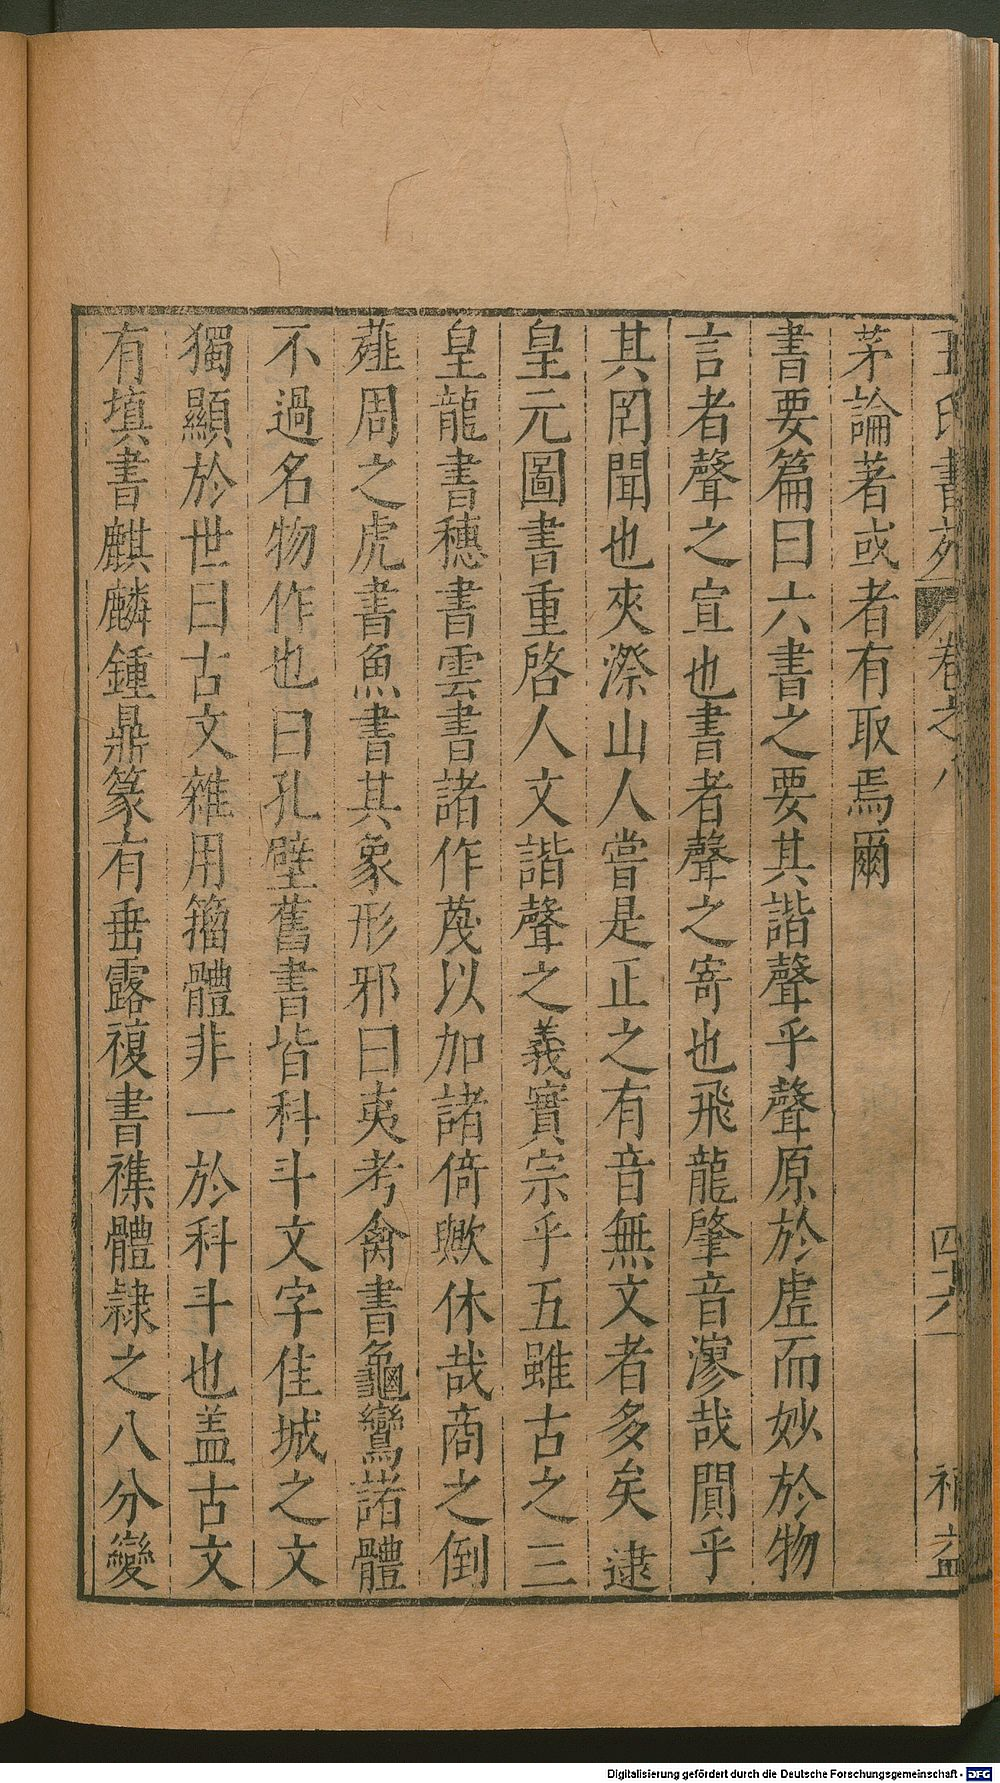 王氏書苑 卷之八 四十六 補益
茅論著或者有取焉爾
書要篇曰六書之要其諧聲乎聲原於虛而妙於物
言者聲之宣也書者聲之寄也飛龍肇音漻哉閴乎
其罔聞也夾漈山人嘗是正之有音無文者多矣逮
皇元圖書重啓人文諧聲之義實宗乎五雖古之三
皇龍書穗書雲書諸作蔑以加諸倚歟休哉商之倒
薤周之虎書魚書其象形邪曰夷考禽書龜鸞諸體
不過名物作也曰孔壁舊書皆科斗文字佳城之文
獨顯於世曰古文雜用籀體非一於科斗也盖古文
有填書麒麟鍾鼎篆有垂露複書襍體隷之八分變
Digitalisierung gefördert durch die Deutsche Forschungsgemeinschaft - DFG